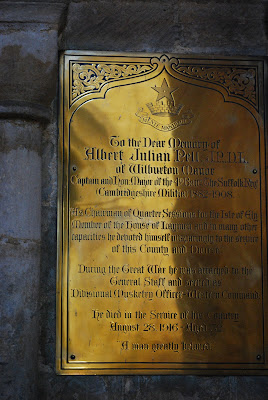 To the Dear Memory of
Albert Julian Pell
of Wilburton Manor
Captain and Hon. Major of the Suffolk
Cambridgeshire Militia
As Chairman of Quarter Sessions for the Isle of Ely
Member of the House of and in many other
capacities he devoted himself to the service
of this County and
During the Great War he was to the
General Staff and as
Divisional Musketry Officer Command
He died in the Service of his Country
August 28 1916
A man greatly